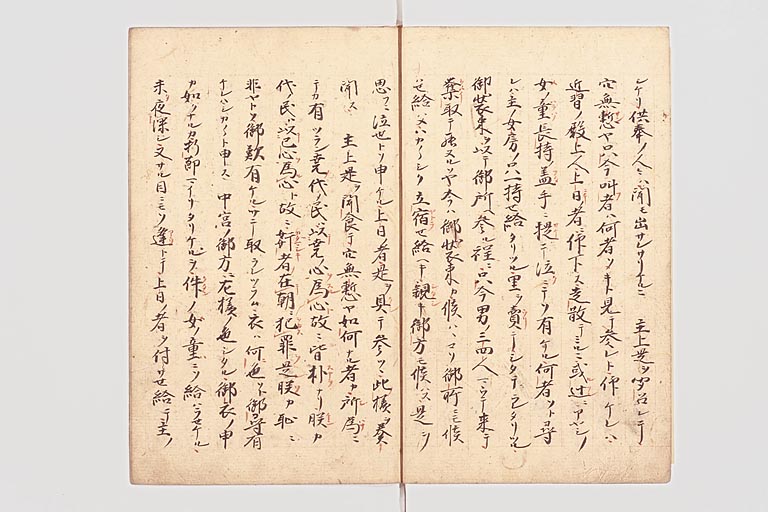 シケリ供奉ノ人々ハ聞モ出サレサリケルニ　主上是ヲ聞召シテ
穴無慙ヤ只今叫者ハ何者ソキト見テ参レト仰ケレハ
近習ノ殿上人上日ノ者ニ仰下ス走散テミルニ或辻ニアヤシノ
女ノ童長持ノ盖手ニ提テ泣ニテソ有ケル何者ソト尋
レハ主ノ女房ノ只一持セ給タリツル里ヲ賣テシタテラレタリツル
御装束ヲ以テ御所ヘ参ル程ニ只今男ノ三四人マウテ来テ
奪取テ罷ヌルソヤ今ハ御装束カ候ハハコソ御所ニモ候
セ給ハメハカ〱シク立宿セ給ヘキ親キ御方モ候ハス是ヲ
思フニ泣也トソ申ケル上日ノ者是ヲ具テ参ツヽ此様ヲ奏
聞ス　主上是ヲ聞食テ穴無慙ヤ如何ナル者カ所為ニ
テカ有ツラン堯代ノ民ハ以堯ノ心為心故ニ皆朴ナリ朕カ
代民ハ以己心為心ト故ニ奸者在朝ニ犯罪是朕カ恥ニ
非ヤトソ御歎有ケルサテ取ラレツラム衣ハ何色ソト御尋有
ケレハシカ〱ト申ス　中宮ノ御方ニ左様ノ色シタル御衣ノ申
カ如ナルカ タリケルヲ件ノ女ノ童ニソ給ハラセケル
未タ夜深シ又サル目ニモソ逢トテ上日ノ者ヲ付サセ給テ主ノ